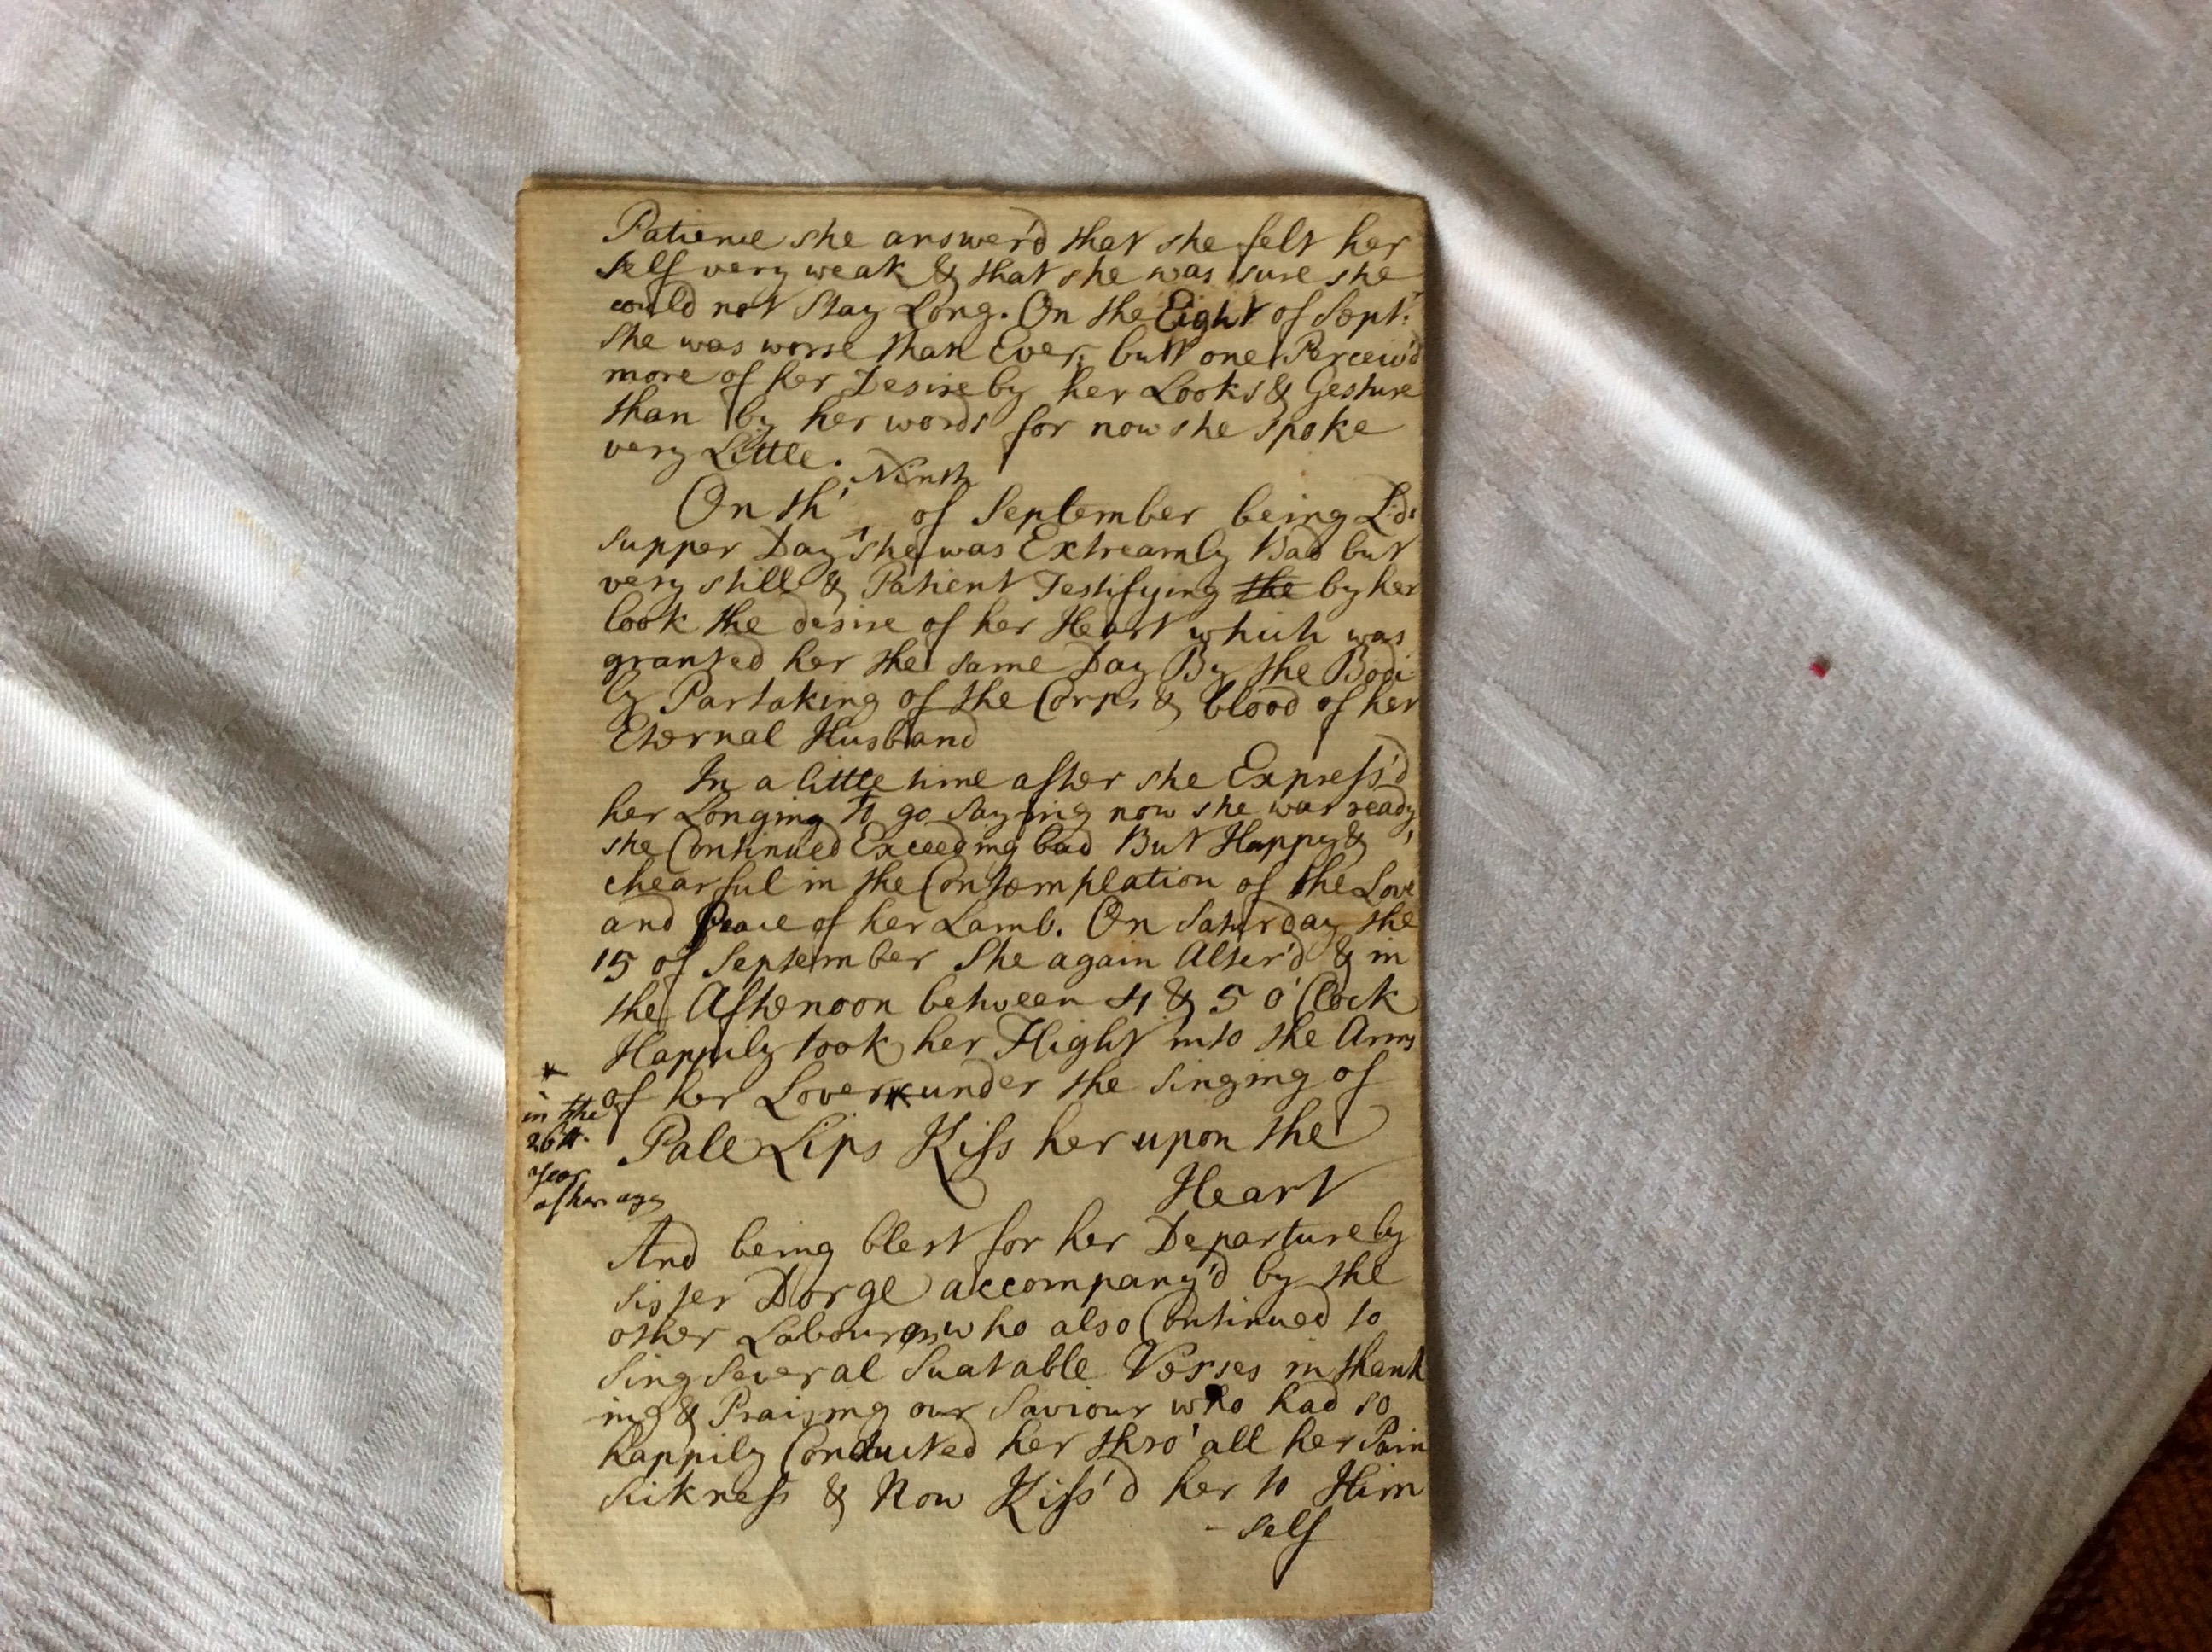 Patience she answer'd that she felt her
self very weak & that she was sure she
could not Stay Long. On the Eight of Sept:
She was worse than Ever; butt one Perceiv'd
more of her Desire by her Looks & Gesture
than by her words for now she spoke
very Little.
Ninth
On th' of September being Lds
supper Day she was Extreamly Bad but
very still & Patient Testifying the by her
look the desire of her Heart which was
granted her the same Day By the Bodi
ly Partaking of the Corps & blood of her
Eternal Husband
In a little time after she Express'd
her Longing to go Saying now she was ready
she Continued Exceeding bad But Happy &
chearful in the Contemplation of the Love
and Peace of her Lamb. On Saturday the
15 of September She again Alter'd & in
the Afternoon between 4 & 5 o'Clock
Happily took her Flight into the Arms
of her Lover * under the Singing of
*
in the
26th
year
of her age
Pale Lips Kiss her upon the
Heart
And being blest for her Departure by
Sister Dorge accompany'd by the
other Labourers who also Continued to
Sing Several Suatable Verses in thank
ing & Praising our Saviour who had so
happily Conducted her thro' all her Pain
Sikness & Now Kiss'd her to Him
- self